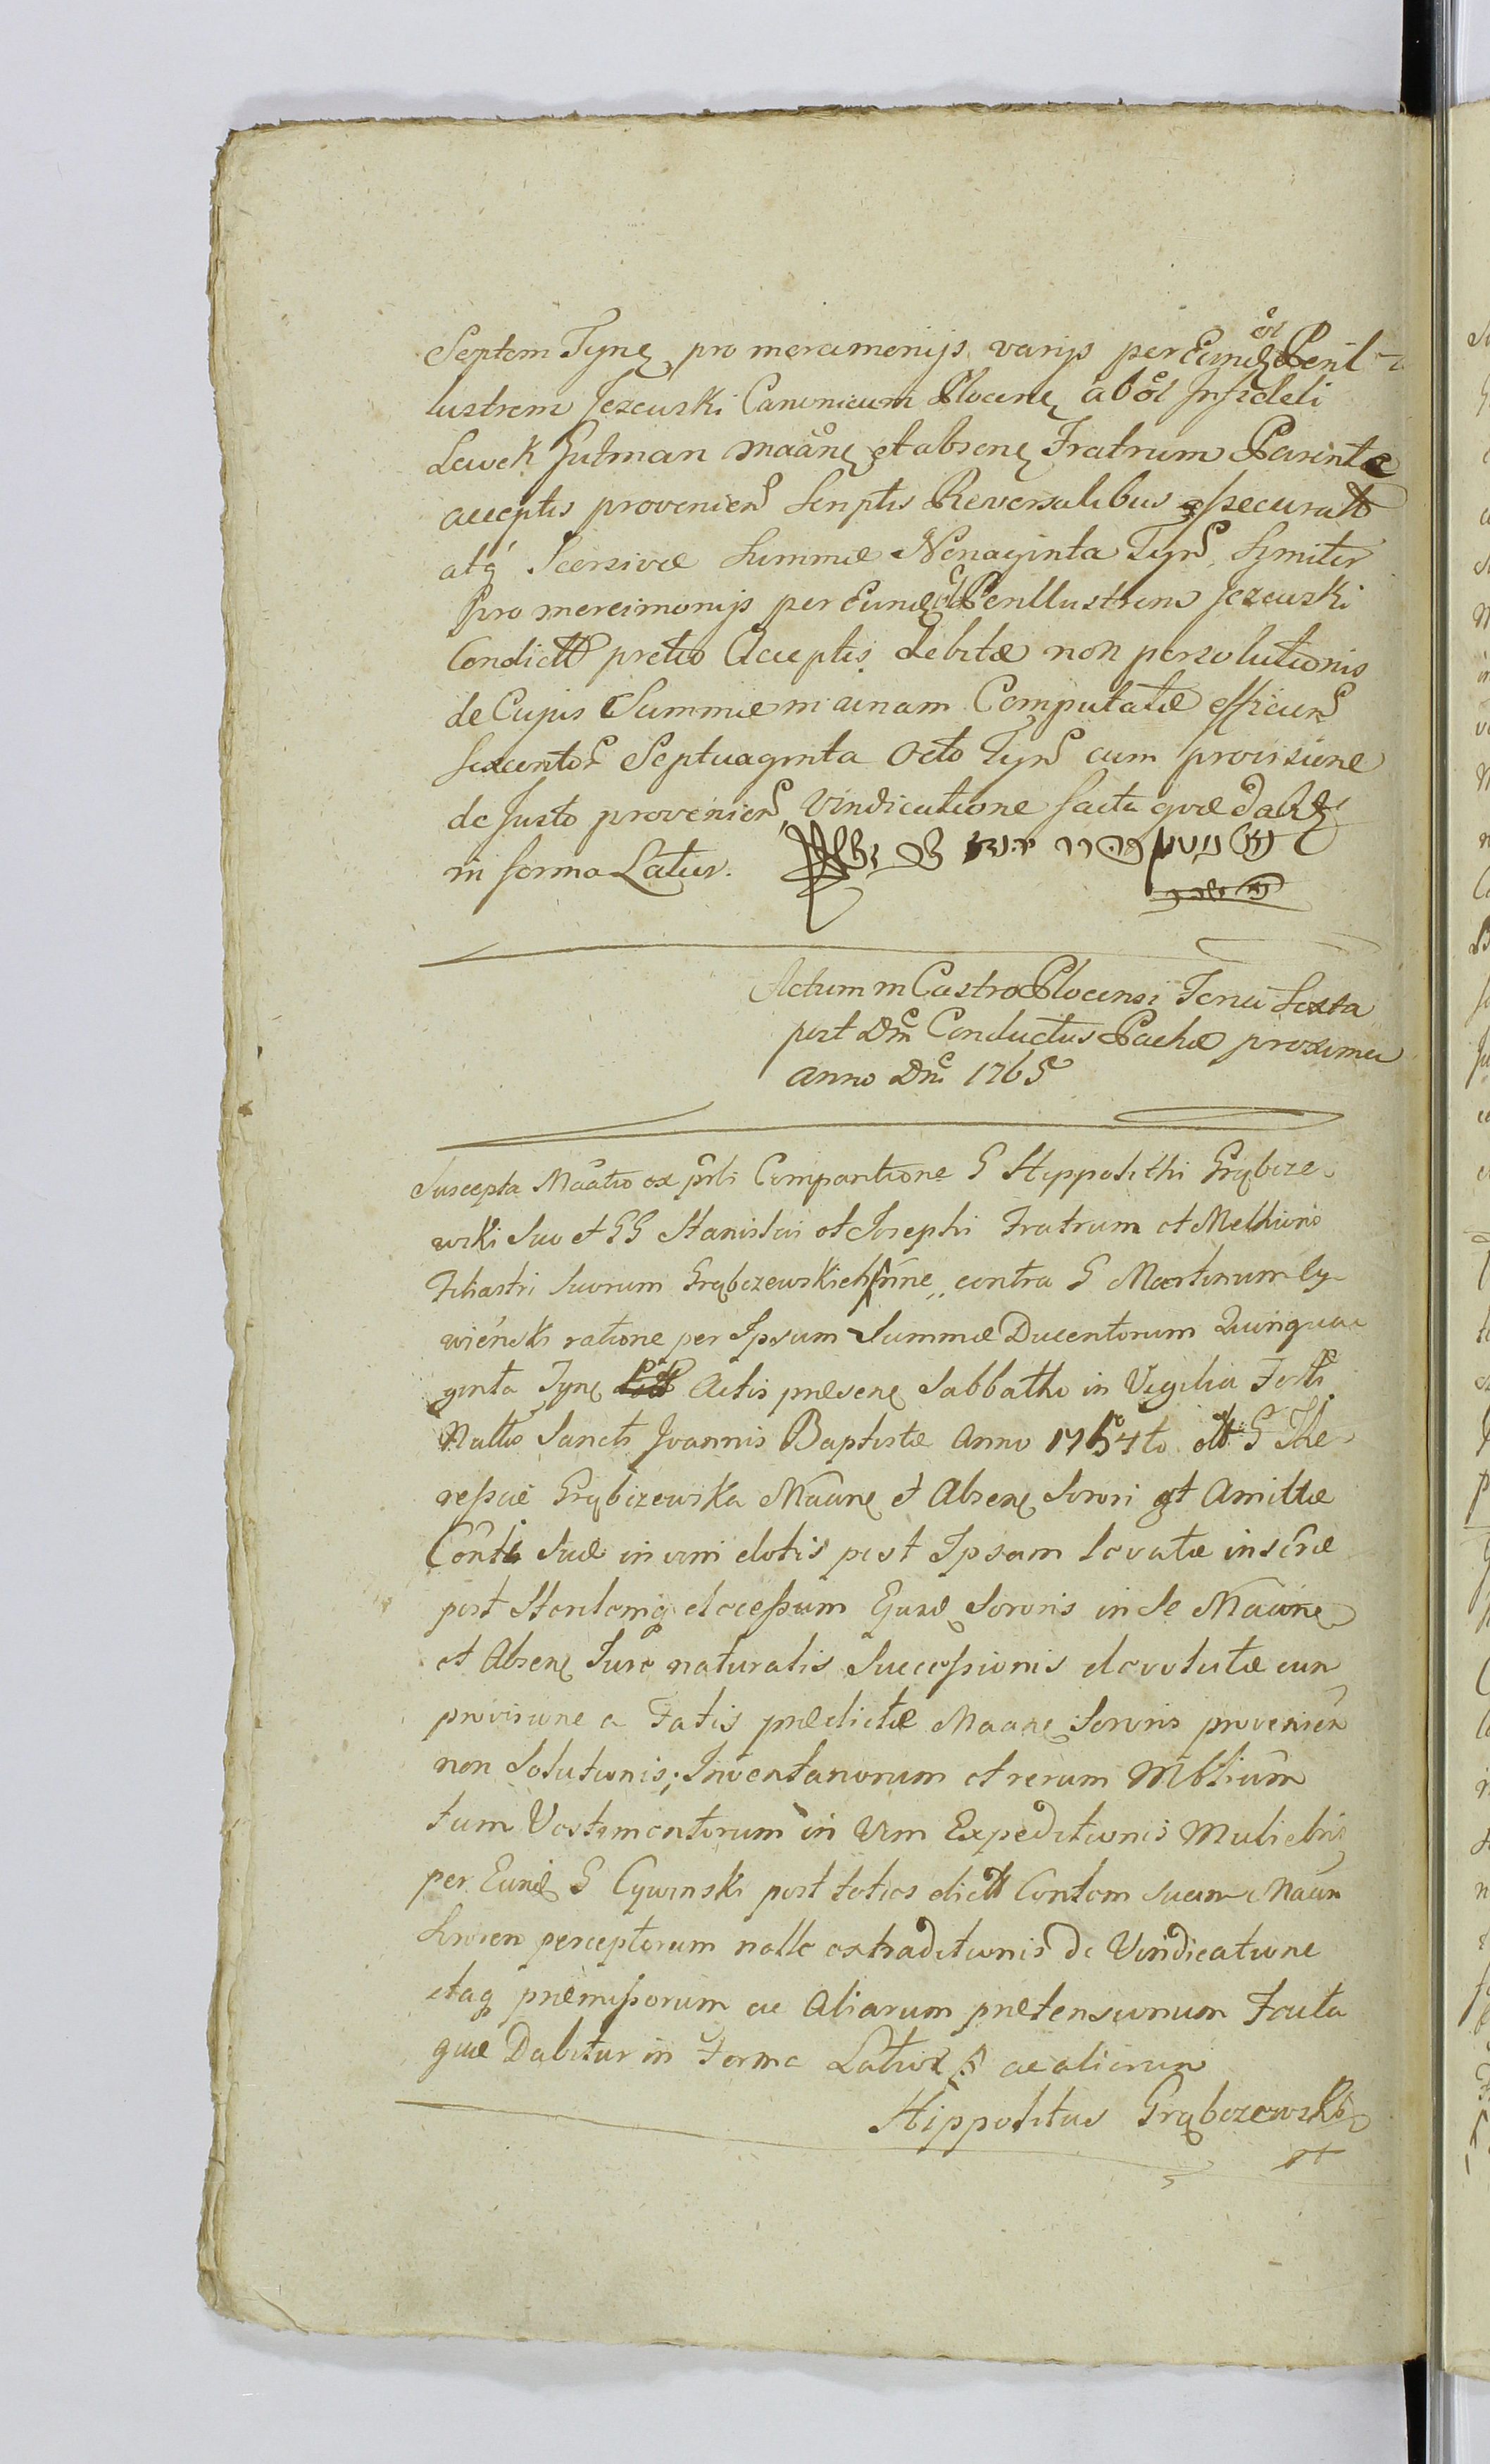 Septem Tyne pro mercimonijs varijs per Eund ol Peril-
lustrem Jezewski Canonicum Plocen ab ol Infideli
Lewek Hutman Maane et absene Fratrum Parinte
acceptis provenien Scriptis Reversalibus assecurat
atq Seorsivæ Summæ Nonaginta Tyn, Symiter
pro mercimonijs per Eund ol Perillustrem Jezewski
Condicto pretio Acceptis debitæ non persolutionis
de Cujus Summæ in unam Computatæ efficien
sexcentor Septuaginta Octo Tyn cum provisione
de Justo provenien Vindicatione facta qvæ dabit
in forma Latior.
Actum in Castro Plocensi Feria Sexta
post Dnm Conductus Paschæ proxima
anno Dni 1765
Suscepta Maatio ex prli Comparitione G Hippolithi Grąbcze-
wski Suo et GG Stanislai et Josephi Fratrum et Melchioris
Filiastri Suorum Grąbczewskich nine contra G Martinum Cy-
wiński ratione per Ipsum Summæ Ducentorum Quinqua-
ginta Tyne Actis præsene Sabbatho in Vigilia Festi
Natlis Sancti Joannis Baptistæ Anno 1754to olt G The-
ressiæ Grąbczewska Maane et Absene Sorori et Amittæ
Contli Suæ in vim dotis post Ipsam levatæ inscræ
post Sterilemq decessum Ejusd Sororis in Se Maane
et Absene Jure naturalis Successionis devolutæ cum
provisione a Fatis prædictæ Maane Sororis provenien
non Solutionis; Inventariorum et rerum Mblium
tum Vestimentorum in Vim Expeditionis Muliebris
per Eund G Cywinski post toties dictt Contem suam Maan
Sororem perceptorum nolle extraditionis de Vindicatione
itaq præmissorum ac Aliarum prætensionum Facta
quæ Dabitur in Forma Latiori ac aliorum
Hippolitus Grąbczewski